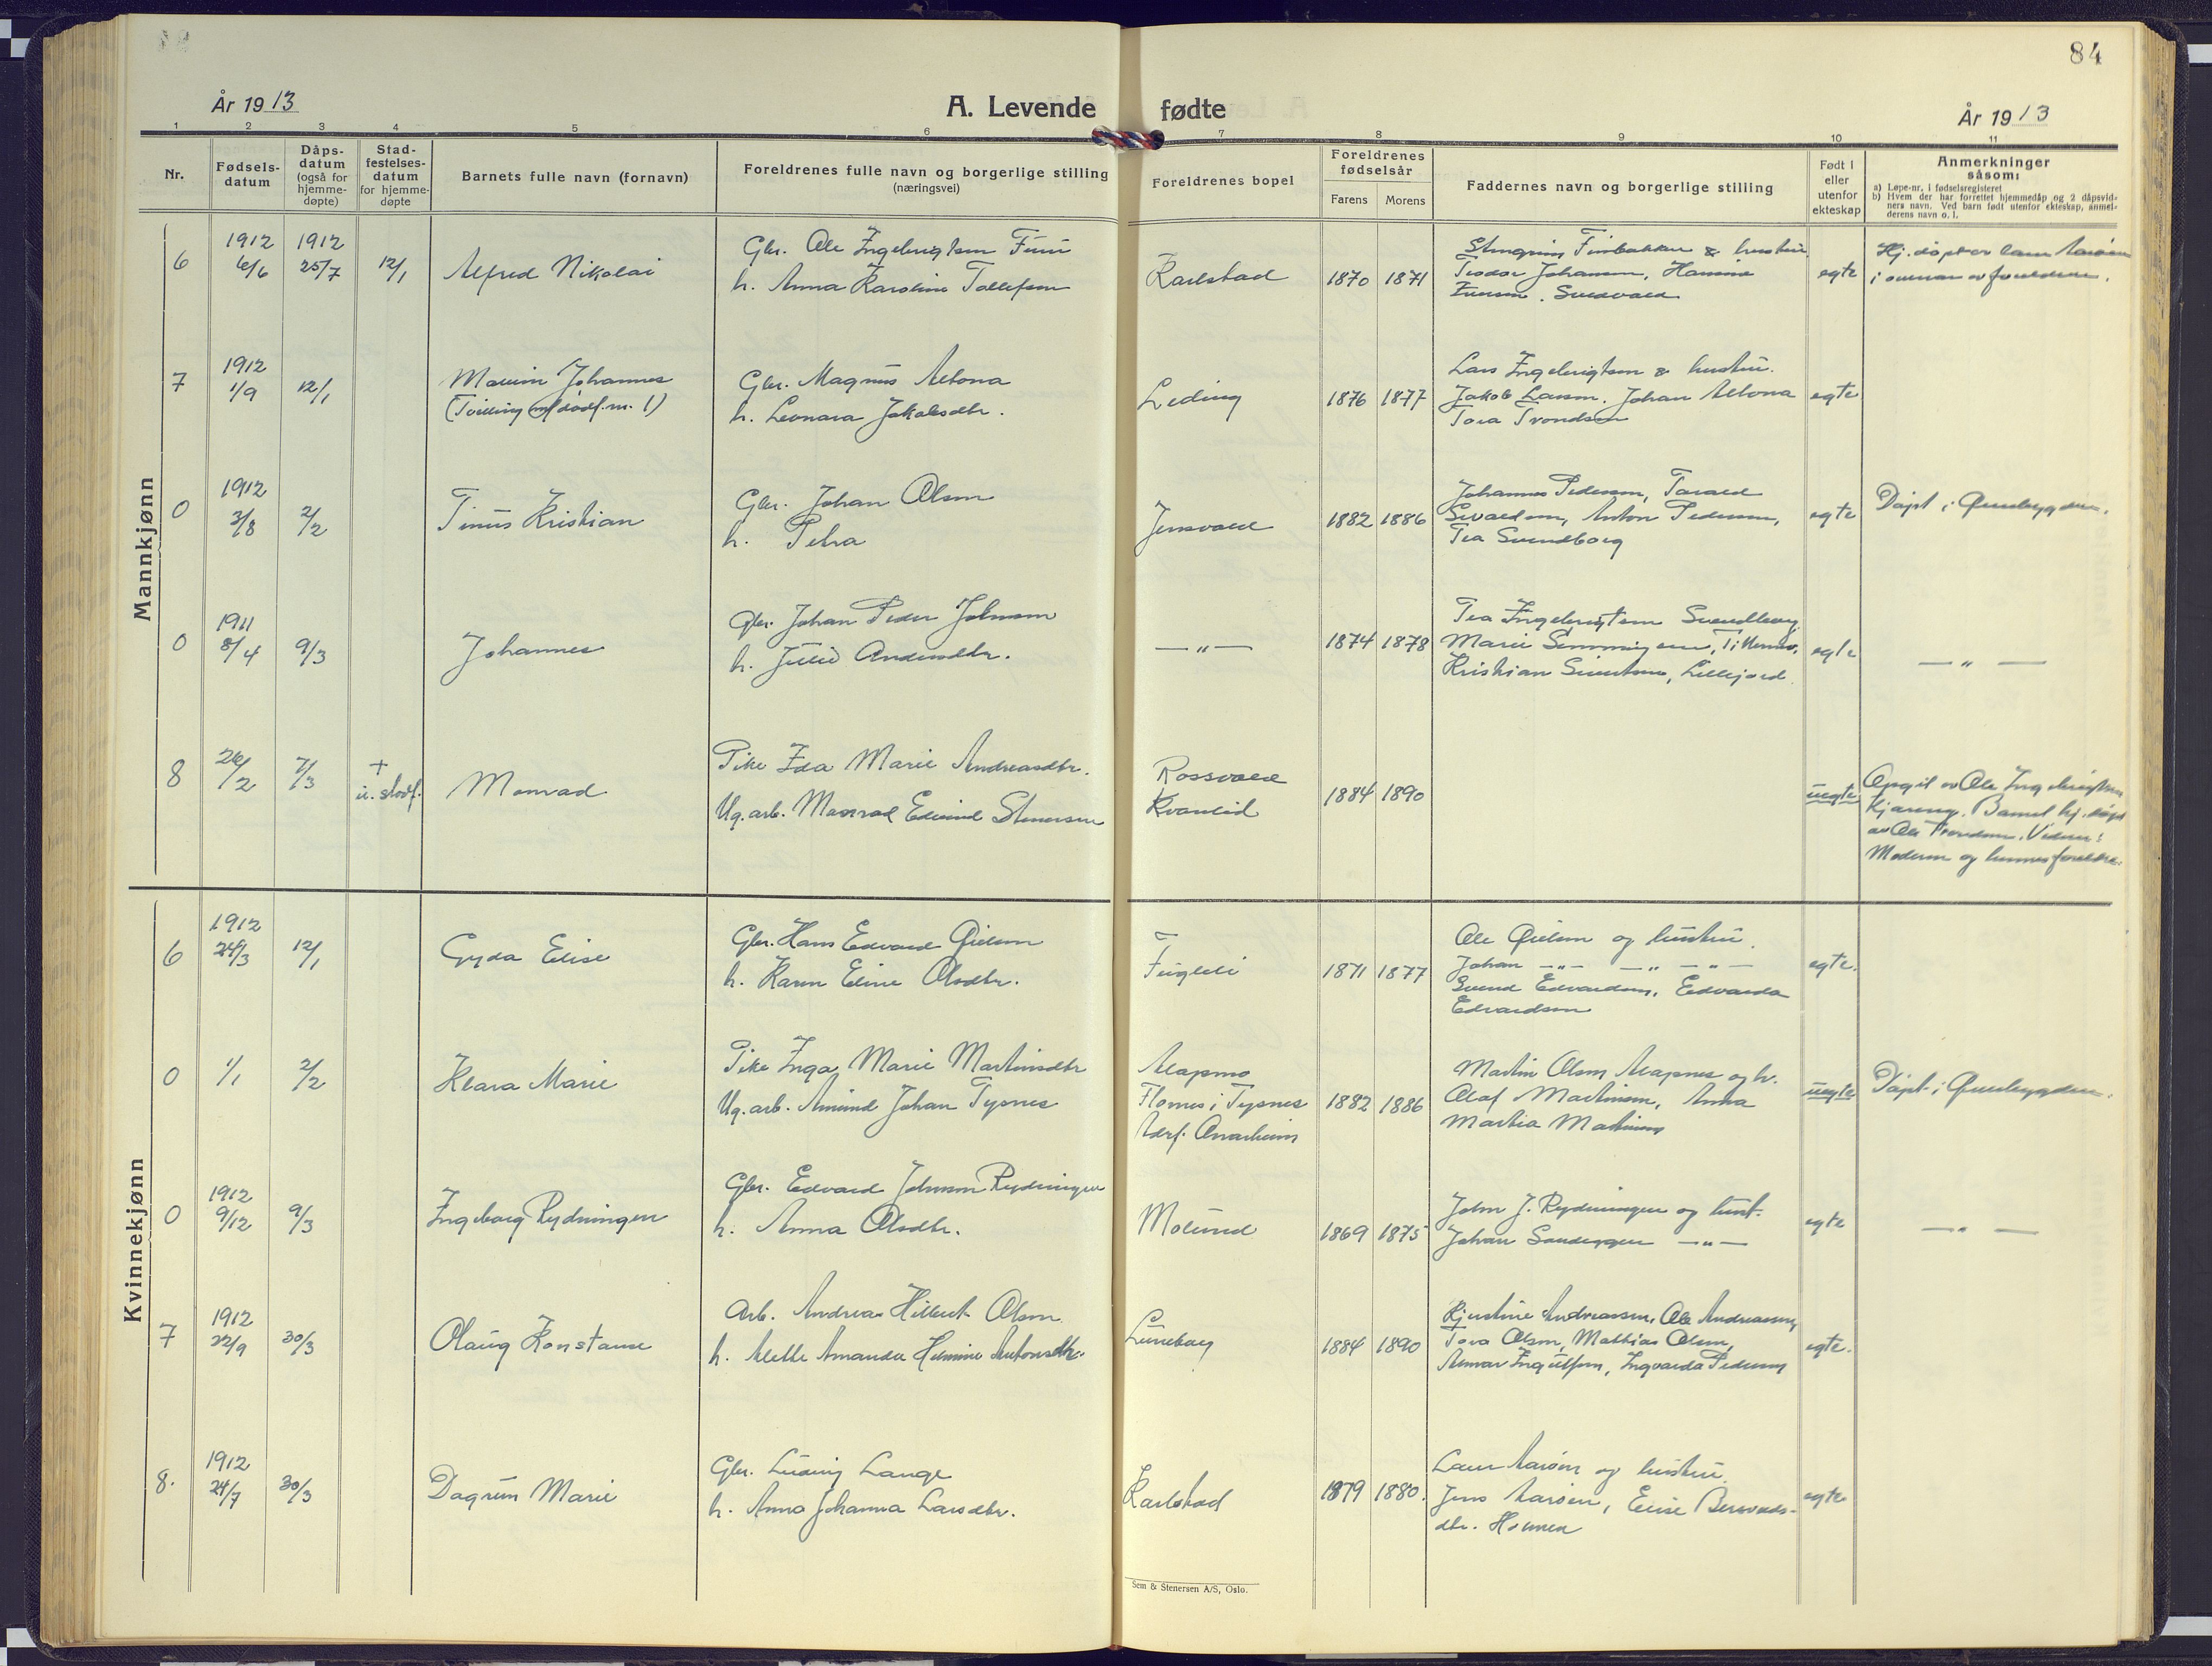 84
År 1913
A. Levende fødte
År 1913
1 2 3 4 5 6 7 8 9 10 11
Nr.
Fødsels-
datum
Dåps-
datum
(også for
hjemme-
døpte)
Stad-
festelses-
datum
for hjemme-
døpte
Barnets fulle navn (fornavn)
Foreldrenes fulle navn og borgerlige stilling
(næringsvei)
Foreldrenes bopel
Foreldrenes
fødselsår
Farens Morens
Faddernes navn og borgerlige stilling
Født i
eller
utenfor
ekteskap
Anmerkninger
såsom:
a) Løpe-nr. i fødselsregisteret
b) Hvem der har forrettet hjemmedåp og 2 dåpsvid-
ners navn. Ved barn født utenfor ekteskap, anmel-
derens navn o. l.
Mannkjønn
6
1912
6/6
1912
25/7
12/1
Alfred Nikolai
Gbr. Ole Ingebrigtsen
h. Anna Karoline Tollefsen
Karlstad
1870 1871
& hustru
Teodor Johansen, Hanna
egte
Hj. døpt av
i nærvær av foreldrene.
7
1912
1/9
12/1
Johannes
(Tvilling m/ dødf. nr. 1)
Gbr. Magnus Altona
h. Leonara Jakobsdtr.
Leding
1876 1877
Lars Ingebrigtsen & hustru.
Jakob Larsen. Johan Altona
Tora Trondsen
egte
0
1912
3/8
2/2
Tinus Kristian
Gbr. Johan Olsen
h. Petra
Jensvold
1882 1886
Johannes Pedersen,
Anton Pedersen,
Tea Svendborg
egte
Døpt i Øverbygden.
0
1911
8/4
9/3
Johannes
Gbr. Johan Peder Johnsen
h. Julie
— " —
1874 1878
Tea Ingebrigtsen Svendborg
Marie
Kristian Sivertsen, Lillejord.
egte
— " —
8
26/2
7/3
+
u. stadf.
Monrad
Pike Ida Marie Andreasdtr.
Ug. arb. Monrad Edvind Stenersen
Rossvold
Kvanlid
1884 1890
uegte
Opgit av Ole Ingebrigtsen
Barnet hj. døpt
av Ole
Moderen og hennes foreldre.
Kvinnekjønn
6
1912
24/3
12/1
Gyda Elise
Gbr. Hans Edvard
h. Karen Eline Olsdtr.
Fuglli
1871 1877
Ole og hustru.
Johan — " — — " — " —
Svend Edvardsen, Edvarda
Edvardsen
egte.
0
1/1
2/2
Klara Marie
Pike Inga Marie Martinsdtr
Ug. arb. Amund Johan Tysnes
Alapmo
Flornes i Tysnes
1882 1886
Martin Olsen Alapmo og h.
Olaf Martinsen, Anna
Martia Martinsen
uegte
Døpt i Øverbygden.
0
1912
9/12
9/3
Ingeborg Rydningen
Gbr. Edvard Johnson Rydningen
h. Anna Olsdtr.
Molund
1869 1875
John J. Rydningen og hust.
Johan Sandeggen — " —
egte
— " —
7
1912
22/9
30/3
Olaug Konstanse
Arb. Andreas Hilbert Olsen
h. Alette Amanda Hermine Antonsdtr.
Luneborg
1884 1890
Kjerstine Andreassen, Ole Andreassen,
Tora Olsen, Mathias Olsen,
Ingvarda Pedersen
egte.
8.
1912
24/7
30/3
Dagrun Marie
Gbr. Ludvig Lange
h. Anna Johanna Larsdtr.
Karlstad
1879 1880.
og hustru.
Jens Aarøen, Elise
dtr. Holmen
egte
Sem & Stenersen A/S, Oslo.